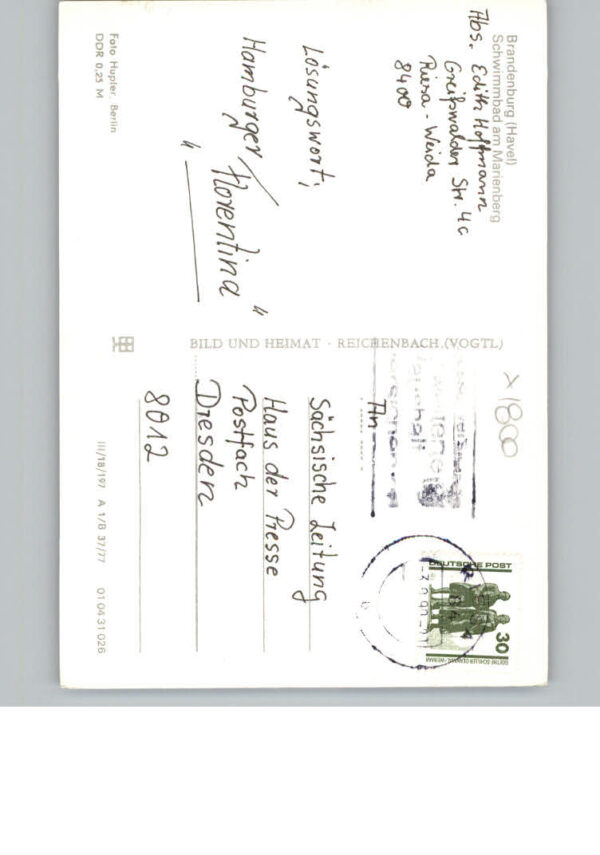 Brandenburg (Havel)
Schwimmbad am Marienberg
Abs. Edith Hoffmann
Greifswalder Str. 4c
Riesa-Weida
8400
Lösungswort:
Hamburger/Florentina
"
"
Foto Hupfer, Berlin
DDR 0,25 M
BILD UND HEIMAT · REICHENBACH (VOGTL)
x 1800
An
Sächsische Zeitung
Haus der Presse
Postfach
Dresden
8012
DEUTSCHE POST
30
III/18/197 A 1/B 37/77 01 04 31 026